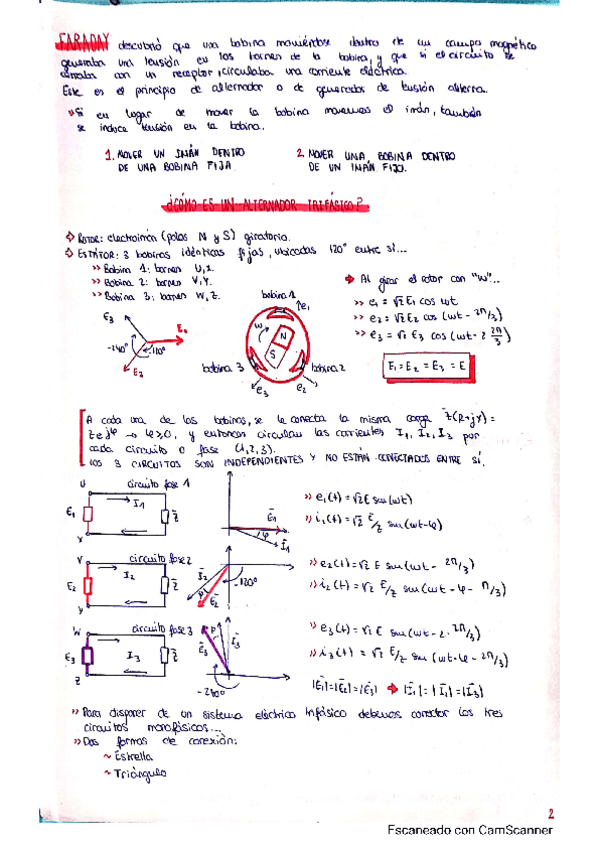 FARADAY descubrió que una bobina moviéndose dentro de un campo magnético
generaba una tensión en los bornes de la bobina, y que si el circuito se
cerraba con un receptor, circulaba una corriente eléctrica.
Este es el principio de alternador o de generador de tensión alterna.
» Si en lugar de mover la bobina movemos el imán, también
se induce tensión en la bobina.
1. MOVER UN IMÁN DENTRO
DE UNA BOBINA FIJA.
2. MOVER UNA BOBINA DENTRO
DE UN IMÁN FIJO.
¿CÓMO ES UN ALTERNADOR TRIFÁSICO?
ROTOR: electroimán (polos N y S) giratorio.
ESTÁTOR: 3 bobinas idénticas fijas, ubicadas 120° entre sí...
» Bobina 1: bornes U,X.
» Bobina 2: bornes V,Y.
» Bobina 3: bornes W,Z.
Al girar el rotor con "w"...
» e₁ = √2 E₁ cos wt
» e₂ = √2 E₂ cos (wt - 2π/3)
» e₃ = √2 E₃ cos (wt - 2 2π/3)
E₁ = E₂ = E₃ = E
E₃
E₁
-240°
-120°
E₂
bobina 1
e₁
w
N
S
bobina 3
bobina 2
e₃
e₂
A cada una de las bobinas, se le conecta la misma carga Z(R+jX) =
Ze^jφ → φ≥0, y entonces circulan las corrientes I₁, I₂, I₃ por
cada circuito o fase (1,2,3).
LOS 3 CIRCUITOS SON INDEPENDIENTES Y NO ESTÁN CONECTADOS ENTRE SÍ.
U
circuito fase 1
I₁
E₁
Z̄
X
Ē₁
φ
Ī₁
» e₁(t) = √2 E sen(wt)
» i₁(t) = √2 E/Z sen(wt-φ)
V
circuito fase 2
I₂
E₂
Z̄
Y
Ī₂
φ
Ē₂
-120°
» e₂(t) = √2 E sen(wt - 2π/3)
» i₂(t) = √2 E/Z sen(wt - φ - π/3)
W
circuito fase 3
I₃
E₃
Z̄
Z
Ē₃
φ
Ī₃
-240°
» e₃(t) = √2 E sen(wt - 2·2π/3)
» i₃(t) = √2 E/Z sen(wt - φ - 2π/3)
|Ē₁|=|Ē₂|=|Ē₃| ➔ |Ī₁|=|Ī₂|=|Ī₃|
» Para disponer de un sistema eléctrico trifásico debemos conectar los tres
circuitos monofásicos...
» Dos formas de conexión:
~ Estrella
~ Triángulo
2
Escaneado con CamScanner